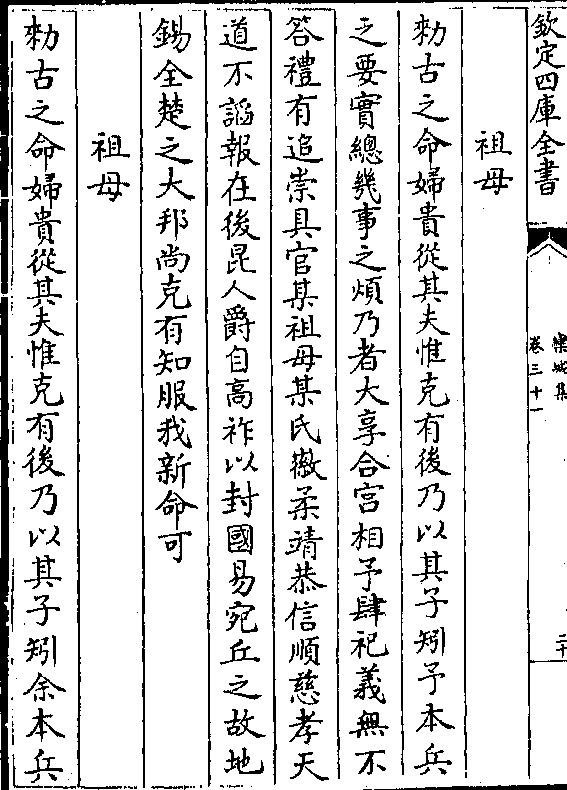 欽定四庫全書
欒城集
卷三十一
祖母
勑古之命婦貴從其夫惟克有後乃以其子矧予本兵
之要實總幾事之煩乃者大享合宫相予肆祀義無不
答禮有追崇具官某祖母某氏徽柔靖恭信順慈孝天
道不謟報在後昆人爵自高祚以封國易宛丘之故地
錫全楚之大邦尚克有知服我新命可
祖母
勑古之命婦貴從其夫惟克有後乃以其子矧余本兵